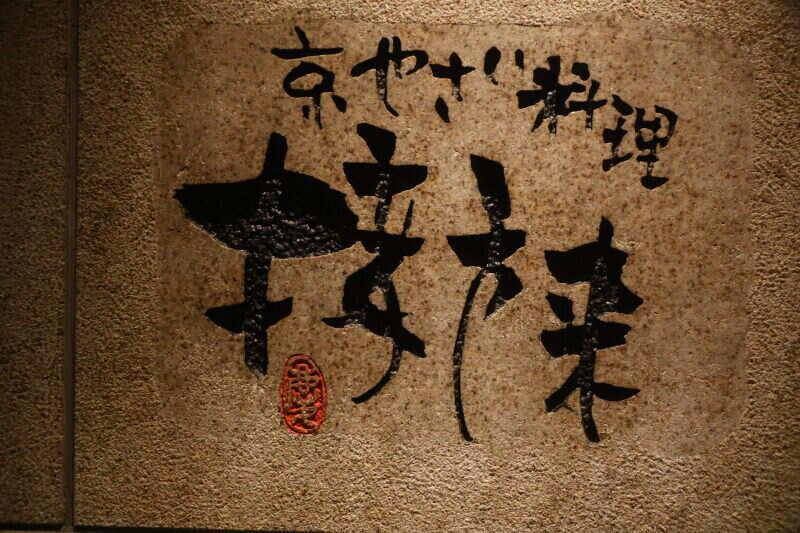 京やさい料理
接方来